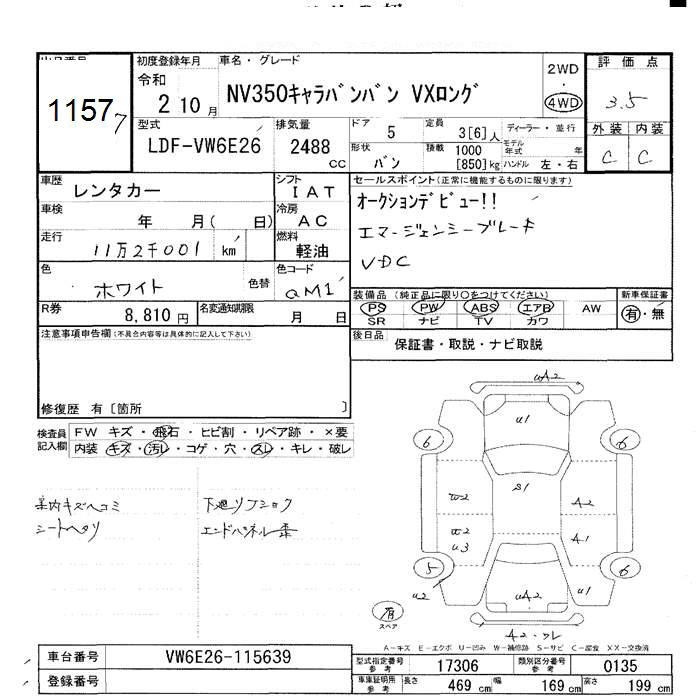 1157 7
初度登録年月 車名・グレード 評価点
令和 2 10月 NV350キャラバンバン VXロング 2WD・4WD 3.5
型式 排気量 ドア 5 定員 3[6]人 ディーラー・並行 外装 内装
LDF-VW6E26 2488 cc 形状 バン 積載 1000 [850]kg モデル年式 年 ハンドル 左・右 C C
車歴 レンタカー シフト IAT セールスポイント(正常に機能するものに限ります)
車検 年 月( 日) 冷房 AC オークションデビュー!!
走行 11万2千001 km 燃料 軽油 エマージェンシーブレーキ
色 ホワイト 色替 色コード QM1 VDC
R券 8,810円 名変通知期限 月 日 装備品(純正品に限り○をつけてください) 新車保証書
PS PW ABS エアB AW 有・無
SR ナビ TV カワ
注意事項申告欄(不具合内容等は具体的に記入して下さい) 後日品 保証書・取説・ナビ取説
修復歴 有[箇所 ]
検査員記入欄 FW キズ・飛石・ヒビ割・リペア跡・×要
内装 キズ・汚レ・コゲ・穴・スレ・キレ・破レ
UA2
U1
6 6
S1
A2
A1
U3
5 6
U2 UA2 U1
シートヘタリ エンドパネル歪
有
スペア A2
A-キズ E-エクボ U-凹み W-補修跡 S-サビ C-腐食 XX-交換済
車台番号 VW6E26-115639 型式指定番号 参考 17306 類別区分番号 参考 0135
登録番号 車庫証明用 参考 長さ 469 cm 幅 169 cm 高さ 199 cm